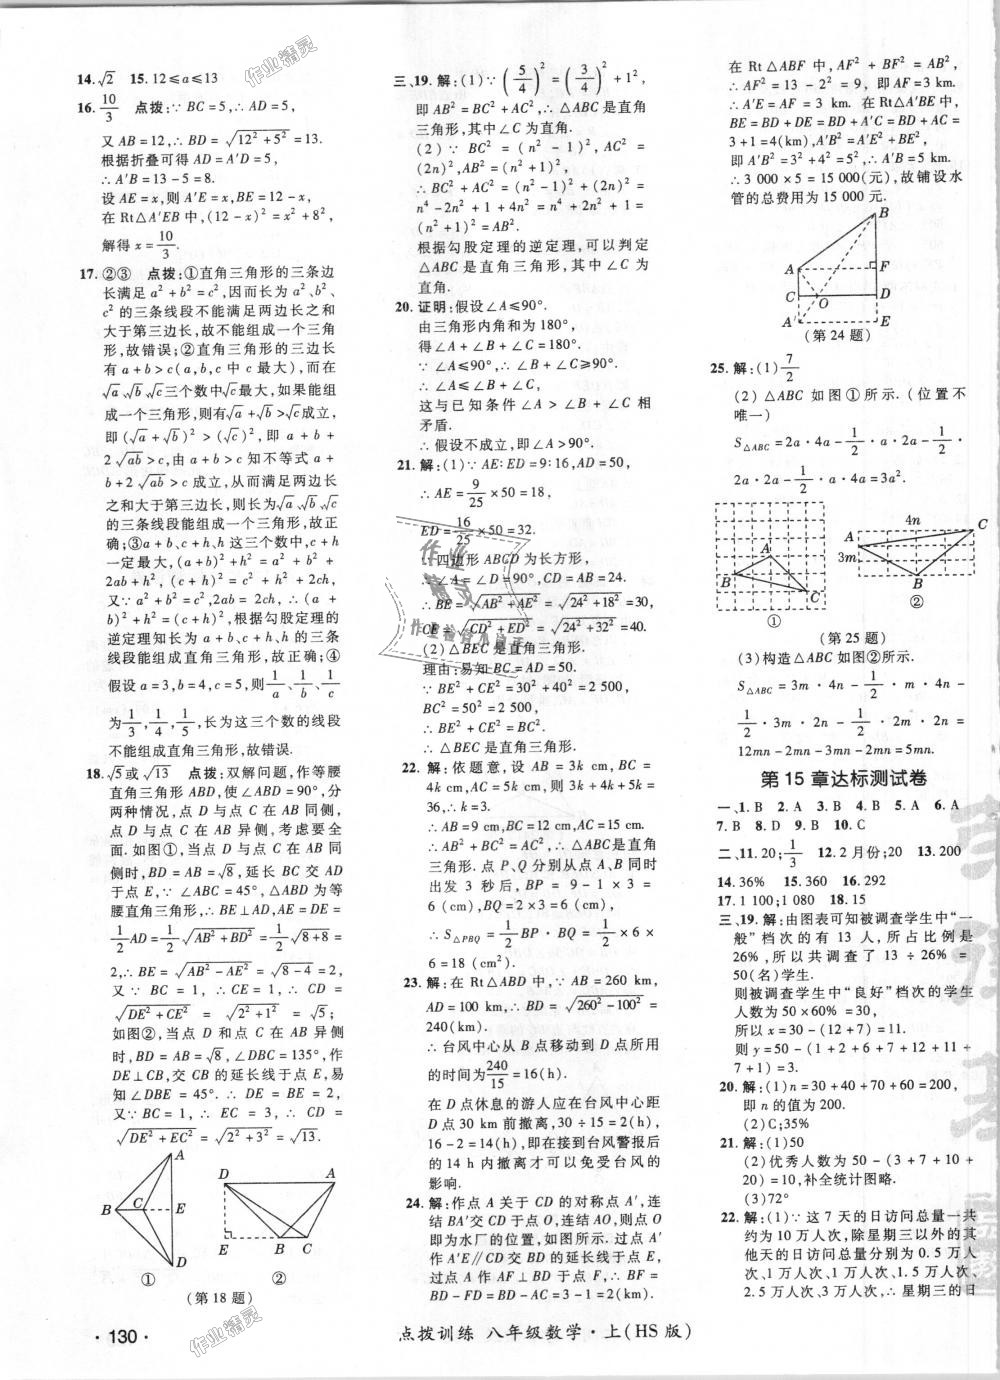 14.√2　15.12≤a≤13
16.10/3　点拨:∵BC=5,∴AD=5,
又AB=12,∴BD=√(12²+5²)=13.
根据折叠可得AD=A′D=5,
∴A′B=13-5=8.
设AE=x,则A′E=x,BE=12-x,
在Rt△A′EB中,(12-x)²=x²+8²,
解得x=10/3.
17.②③　点拨:①直角三角形的三条边
长满足a²+b²=c²,因而长为a²、b²、
c²的三条线段不能满足两边长之和
大于第三边长,故不能组成一个三角
形,故错误;②直角三角形的三边长
有a+b>c(a,b,c中c最大),而在
√a、√b、√c三个数中√c最大,如果能组
成一个三角形,则有√a+√b>√c成立,
即(√a+√b)²>(√c)²,即a+b+
2√ab>c,由a+b>c知不等式a+
b+2√ab>c成立,从而满足两边长
之和大于第三边长,则长为√a、√b、√c的
三条线段能组成一个三角形,故正
确;③a+b、c+h、h这三个数中,c+h
一定最大,(a+b)²+h²=a²+b²+
2ab+h²,(c+h)²=c²+h²+2ch,
又∵a²+b²=c²,2ab=2ch,∴(a+
b)²+h²=(c+h)²,根据勾股定理的
逆定理知长为a+b、c+h、h的三条
线段能组成直角三角形,故正确;④
假设a=3,b=4,c=5,则1/a、1/b、1/c
为1/3、1/4、1/5,长为这三个数的线段
不能组成直角三角形,故错误.
18.√5或√13　点拨:双解问题,作等腰
直角三角形ABD,使∠ABD=90°,分
两种情况,点D与点C在AB同侧,
点D与点C在AB异侧,考虑要全
面.如图①,当点D与点C在AB同
侧时,BD=AB=√8,延长BC交AD
于点E,∵∠ABC=45°,△ABD为等
腰直角三角形,∴BE⊥AD,AE=DE=
1/2AD=1/2√(AB²+BD²)=1/2√(8+8)=
2,∴BE=√(AB²-AE²)=√(8-4)=2,
又∵BC=1,∴CE=1,∴CD=
√(DE²+CE²)=√(2²+1²)=√5;
如图②,当点D和点C在AB异侧
时,BD=AB=√8,∠DBC=135°,作
DE⊥CB,交CB的延长线于点E,则
∠DBE=45°,∴DE=BE=2,
又∵BC=1,∴EC=3,∴CD=
√(DE²+EC²)=√(2²+3²)=√13.
A
B C E
D
①
D A
E B C
②
(第18题)
三、19.解:(1)∵(5/4)²=(3/4)²+1²,
即AB²=BC²+AC²,∴△ABC是直角
三角形,其中∠C为直角.
(2)∵BC²=(n²-1)²,AC²=
(2n)²,AB²=(n²+1)²,
∴BC²+AC²=(n²-1)²+(2n)²=
n⁴-2n²+1+4n²=n⁴+2n²+1=
(n²+1)²=AB².
根据勾股定理的逆定理,可以判定
△ABC是直角三角形,其中∠C为
直角.
20.证明:假设∠A≤90°.
由三角形内角和为180°,
得∠A+∠B+∠C=180°.
∵∠A≤90°,∴∠B+∠C≥90°.
∴∠A≤∠B+∠C.
这与已知条件∠A>∠B+∠C相
矛盾.
∴假设不成立,即∠A>90°.
21.解:(1)∵AE∶ED=9∶16,AD=50,
∴AE=9/25×50=18,
ED=16/25×50=32.
∵四边形ABCD为长方形,
∴∠A=∠D=90°,CD=AB=24.
∴BE=√(AB²+AE²)=√(24²+18²)=30,
CE=√(CD²+ED²)=√(24²+32²)=40.
(2)△BEC是直角三角形.
理由:易知BC=AD=50.
∵BE²+CE²=30²+40²=2 500,
BC²=50²=2 500,
∴BE²+CE²=BC².
∴△BEC是直角三角形.
22.解:依题意,设AB=3k cm,BC=
4k cm,AC=5k cm,则3k+4k+5k=
36,∴k=3.
∴AB=9 cm,BC=12 cm,AC=15 cm.
∵AB²+BC²=AC²,∴△ABC是直角
三角形.点P、Q分别从点A、B同时
出发3秒后,BP=9-1×3=
6(cm),BQ=2×3=6(cm).
∴S△PBQ=1/2BP·BQ=1/2×6
×6=18(cm²).
23.解:在Rt△ABD中,∵AB=260 km,
AD=100 km,∴BD=√(260²-100²)=
240(km).
∴台风中心从B点移动到D点所用
的时间为240/15=16(h).
在D点休息的游人应在台风中心距
D点30 km前撤离,30÷15=2(h),
16-2=14(h),即在接到台风警报后
的14 h内撤离才可以免受台风的
影响.
24.解:作点A关于CD的对称点A′,连
结BA′交CD于点O,连结AO,则点O
即为水厂的位置,如图,过点A′
作A′E∥CD交BD的延长线于点E,
过点A作AF⊥BD于点F,∴DE=
BD-FD=BD-AC=3-1=2(km).
在Rt△ABF中,AF²+BF²=AB²,
∴AF²=13-2²=9,∴AF=3 km.
∴A′E=AF=3 km. 在Rt△A′BE中,
BE=BD+DE=BD+A′C=BD+AC=
3+1=4(km),A′B²=A′E²+BE²,
即A′B²=3²+4²=5²,∴A′B=5 km.
∴3 000×5=15 000(元),故铺设水
管的总费用为15 000元.
B
A F
C O D
A′ E
(第24题)
25.解:(1)7/2
(2)△ABC如图①所示.(位置不
唯一)
S△ABC=2a·4a-1/2·a·2a-1/2·
2a·2a-1/2·a·4a=3a².
A
B
C
①
4n
3m
A C
B
②
(第25题)
(3)构造△ABC如图②所示.
S△ABC=3m·4n-1/2·m·4n-
1/2·3m·2n-1/2·2m·2n=
12mn-2mn-3mn-2mn=5mn.
第15章达标测试卷
一、1.B　2.A　3.B　4.B　5.A　6.A
7.B　8.D　9.B　10.C
二、11.20;1/3　12.2月份;20　13.200
14.36%　15.360　16.292
17.1 100;1 080　18.15
三、19.解:由图表可知被调查学生中“一
般”档次的有13人,所占比例是
26%,所以共调查了13÷26%=
50(名)学生.
则被调查学生中“良好”档次的学生
人数为50×60%=30,
所以x=30-(12+7)=11.
则y=50-(1+2+6+7+12+11+
7+1)=3.
20.解:(1)n=30+40+70+60=200,
即n的值为200.
(2)C;35%
21.解:(1)50
(2)优秀人数为50-(3+7+10+
20)=10,补全统计图略.
(3)72°
22.解:(1)∵这7天的日访问总量一共
约为10万人次,除星期三以外的其
他天的日访问总量分别为0.5万人
次、1万人次、1万人次、1.5万人次、
2.5万人次、3万人次,∴星期三的日
·130·
点拨训练 八年级数学·上(HS版)
作业精灵
作业精灵
作业精灵